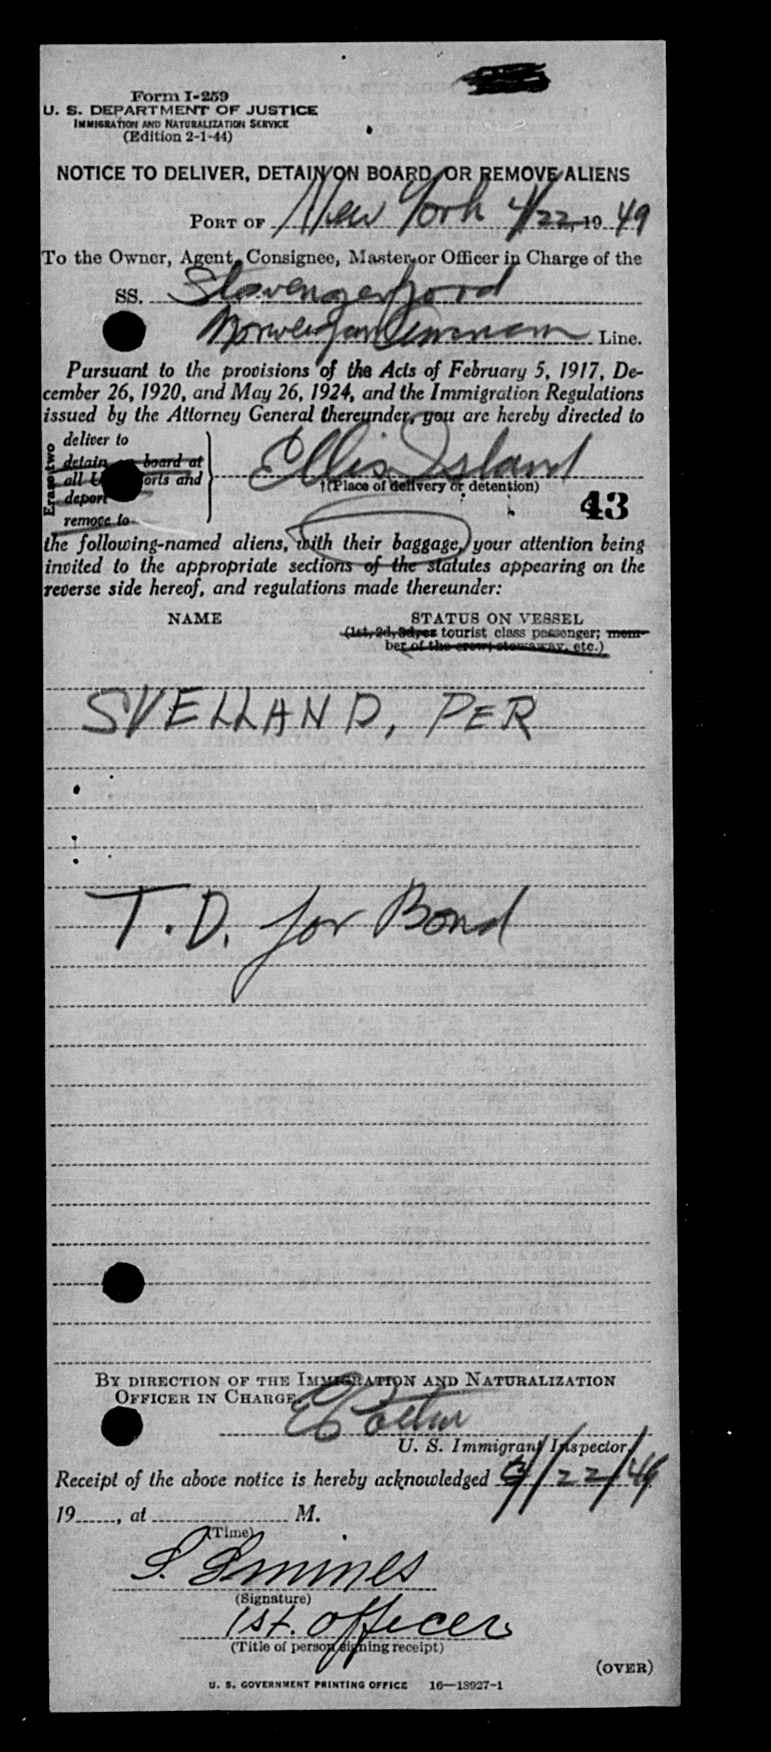 Form I-259
U. S. DEPARTMENT OF JUSTICE
IMMIGRATION AND NATURALIZATION SERVICE
(Edition 2-1-44)
NOTICE TO DELIVER, DETAIN ON BOARD, OR REMOVE ALIENS
PORT OF New York 4/22, 19 49
To the Owner, Agent, Consignee, Master or Officer in Charge of the
SS. Stavengerfjord
Norwegian American Line.
Pursuant to the provisions of the Acts of February 5, 1917, De-
cember 26, 1920, and May 26, 1924, and the Immigration Regulations
issued by the Attorney General thereunder, you are hereby directed to
Erase two
deliver to
detain on board at
all U ports and
deport
remove to
Ellis Island
†(Place of delivery or detention)
43
the following-named aliens, with their baggage, your attention being
invited to the appropriate sections of the statutes appearing on the
reverse side hereof, and regulations made thereunder:
NAME STATUS ON VESSEL
(1st, 2d, 3d, or tourist class passenger; mem-
ber of the crew; stowaway, etc.)
SVELLAND, PER
T.D. for Bond
BY DIRECTION OF THE IMMIGRATION AND NATURALIZATION
OFFICER IN CHARGE.
U. S. Immigrant Inspector.
Receipt of the above notice is hereby acknowledged 4/22/49
19......, at .................... M.
(Time)
S.
(Signature)
1st. officer
(Title of person signing receipt)
(OVER)
U. S. GOVERNMENT PRINTING OFFICE 16—18927-1